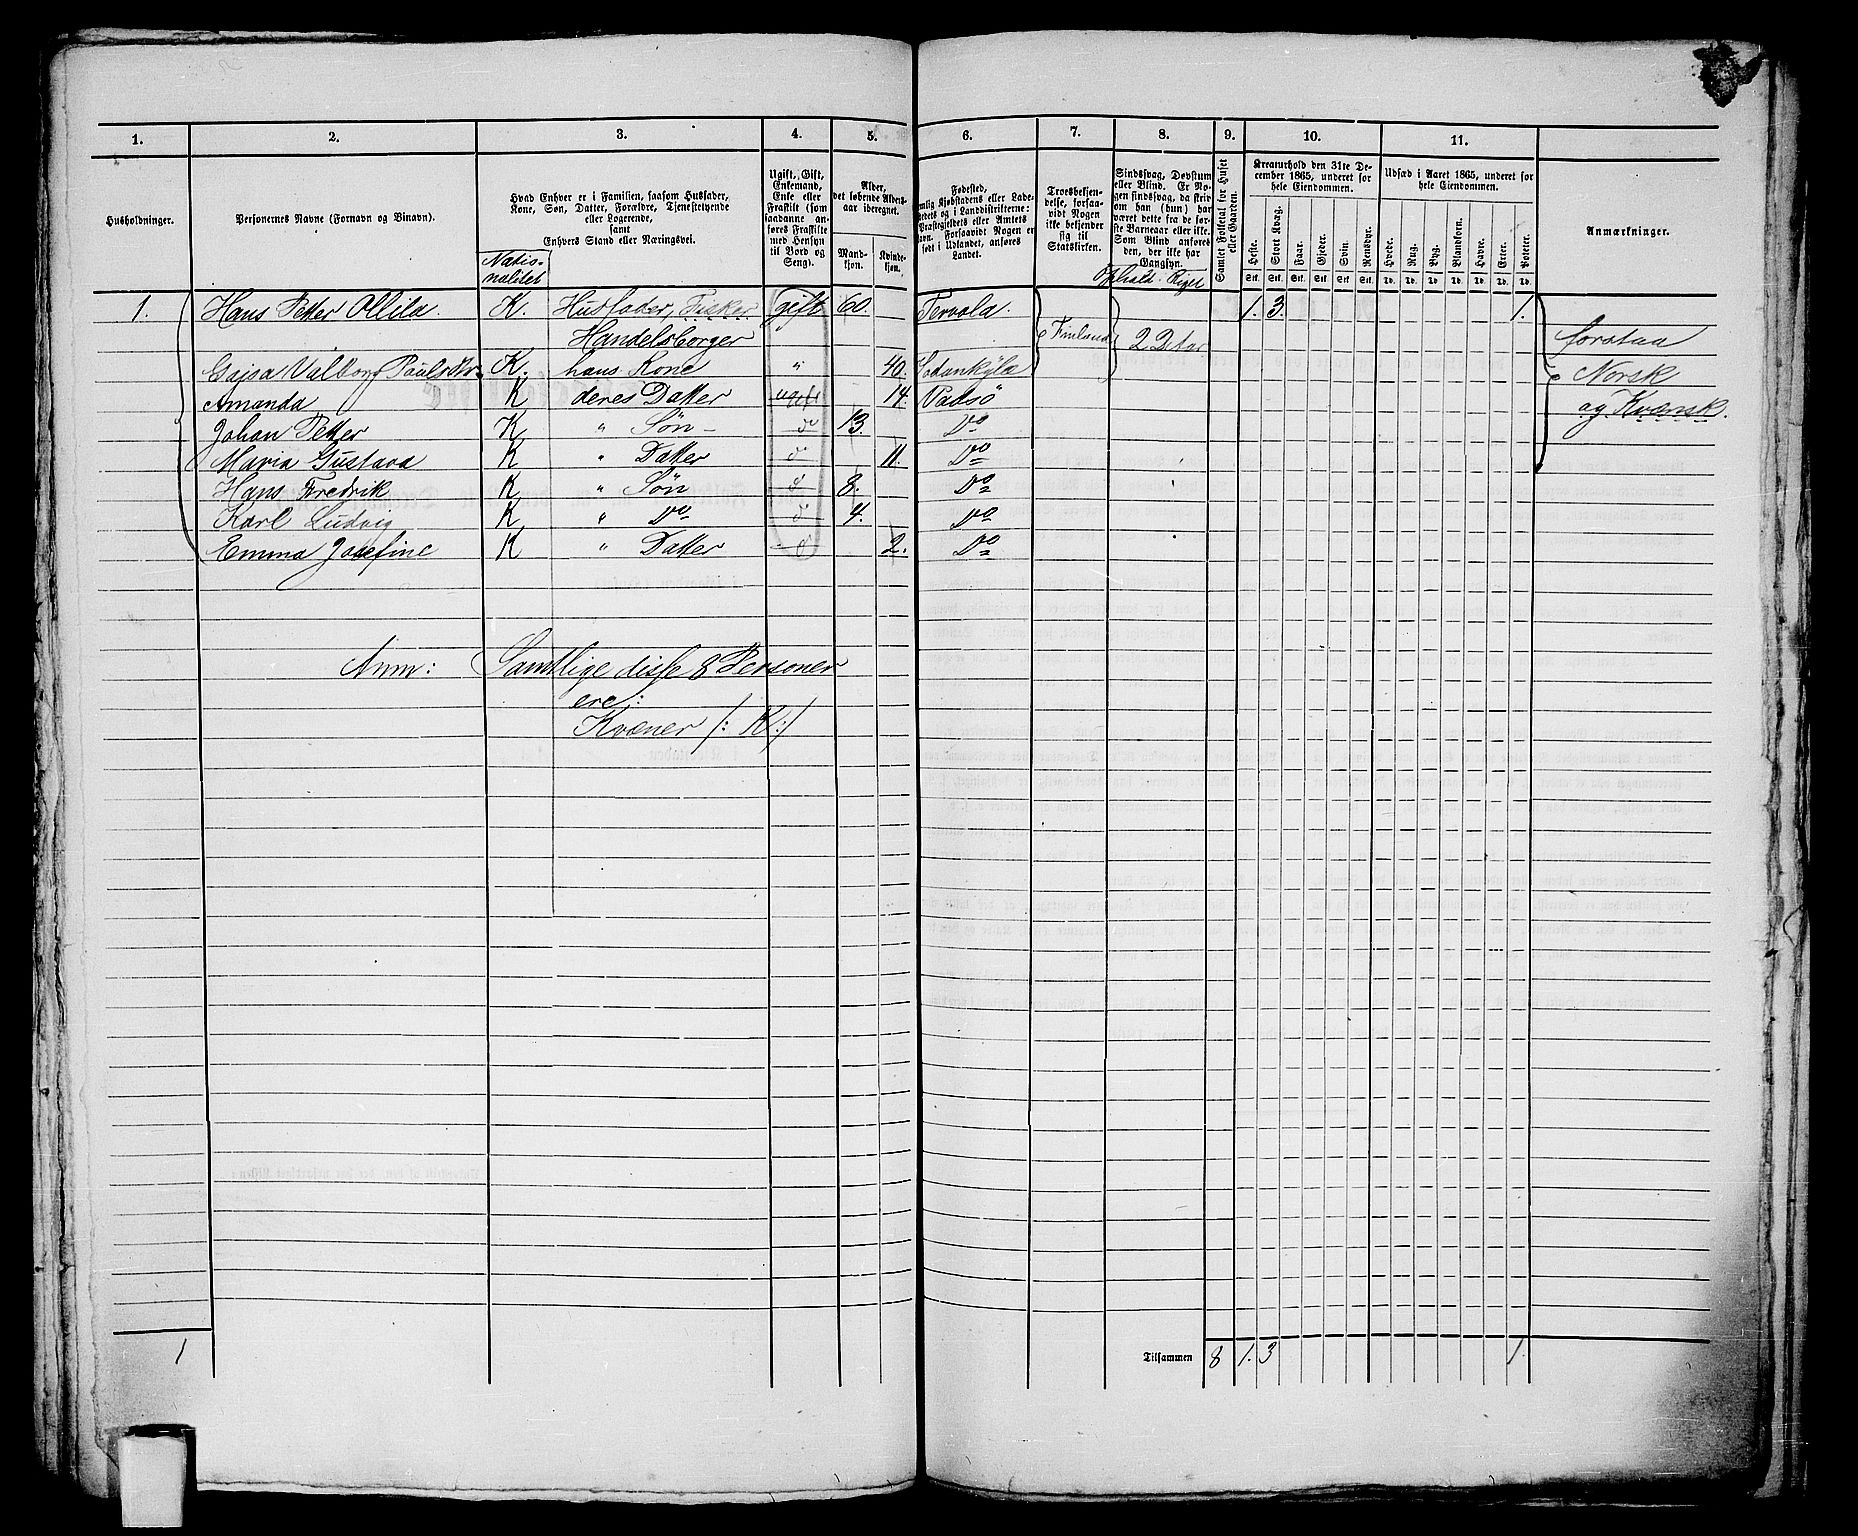 1. 2. 3. 4. 5. 6. 7. 8. 9. 10. 11.
Husholdninger.
Personernes Navne (Fornavn og Binavn).
Hvad Enhver er i Familien, saasom Husfader,
Kone, Søn, Datter, Forældre, Tjenestetyende
eller Logerende,
samt
Enhvers Stand eller Næringsvei.
Natio-
nalitet
Ugift, Gift,
Enkemand,
Enke eller
Fraskilt (som
saadanne an-
føres Fraskilte
med Hensyn
til Bord og
Seng).
Alder,
det løbende Alders-
aar iberegnet.
Mand-
kjøn.
Kvinde-
kjøn.
Fødested,
Kjøbstadens eller Lade-
stedets og i Landdistrikterne:
Præstegjeldets eller Amtets
Navn. Forsaavidt Nogen er
født i Udlandet, anføres
Landet.
Troesbekjen-
delse, forsaa-
vidt Nogen
ikke bekjender
sig til
Statskirken.
Sindssvag, Døvstum
eller Blind. Er No-
gen sindssvag, da skri-
ves om han (hun) har
været dette fra de før-
ste Barneaar eller ikke.
Som Blind anføres
den, der ikke har
Gangsyn.
Ophold i Riget
Samlet Folketal for Huset
eller Gaarden.
Kreaturhold den 31te De-
cember 1865, underet for
hele Eiendommen.
Heste. Stort Kvæg. Faar. Gjeder. Svin. Rensdyr.
Stk. Stk. Stk. Stk. Stk. Stk.
Udsæd i Aaret 1865, underet for
hele Eiendommen.
Hvede. Rug. Byg. Blandkorn. Havre. Erter. Poteter.
Td. Td. Td. Td. Td. Td. Td.
Anmærkninger.
1. Hans Petter Ollila. K. Husfader, Fisker gift 60. Tervola. 1. 3. 1.
Handelsborger Finland 2 Detar forstaa
Gajsa Valborg Paulsdtr. K. hans Kone " 40. Sodankylæ Norsk
Amanda K deres Datter ugift 14. Vadsö og Kvænsk.
Johan Petter K " Søn - do 13. Do
Maria Gustava K " Datter do 11. Do
Hans Fredrik K " Søn d 8. Do
Karl Ludvig K " Do d 4. Do
Emma Josefine K " Datter d 2. Do
Anm: Samtlige disse 8 Personer
ere:
Kvæner /: K :/
1 Tilsammen 8 1. 3 1.